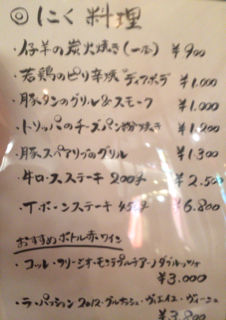 ◎ にく 料理
・仔羊の炭火焼き(一本) ¥900
・若鶏のピリ辛焼"ディアボラ ¥1.000
・豚タンのグリル&スモーク ¥1.000
・トリッパのチーズパン粉焼き ¥1.200
・豚スペアリブのグリル ¥1.300
・牛ロースステーキ 200g ¥2.500
・Tボーンステーキ 450g ¥6.800
おすすめボトル赤ワイン
・コッレ・フリージオ・モンテプルチアーノ ダブルッツォ
¥3.000
・ラ・パッション 2012・グルナッシュ・ヴィエイユ・ヴィーニュ
¥3.800